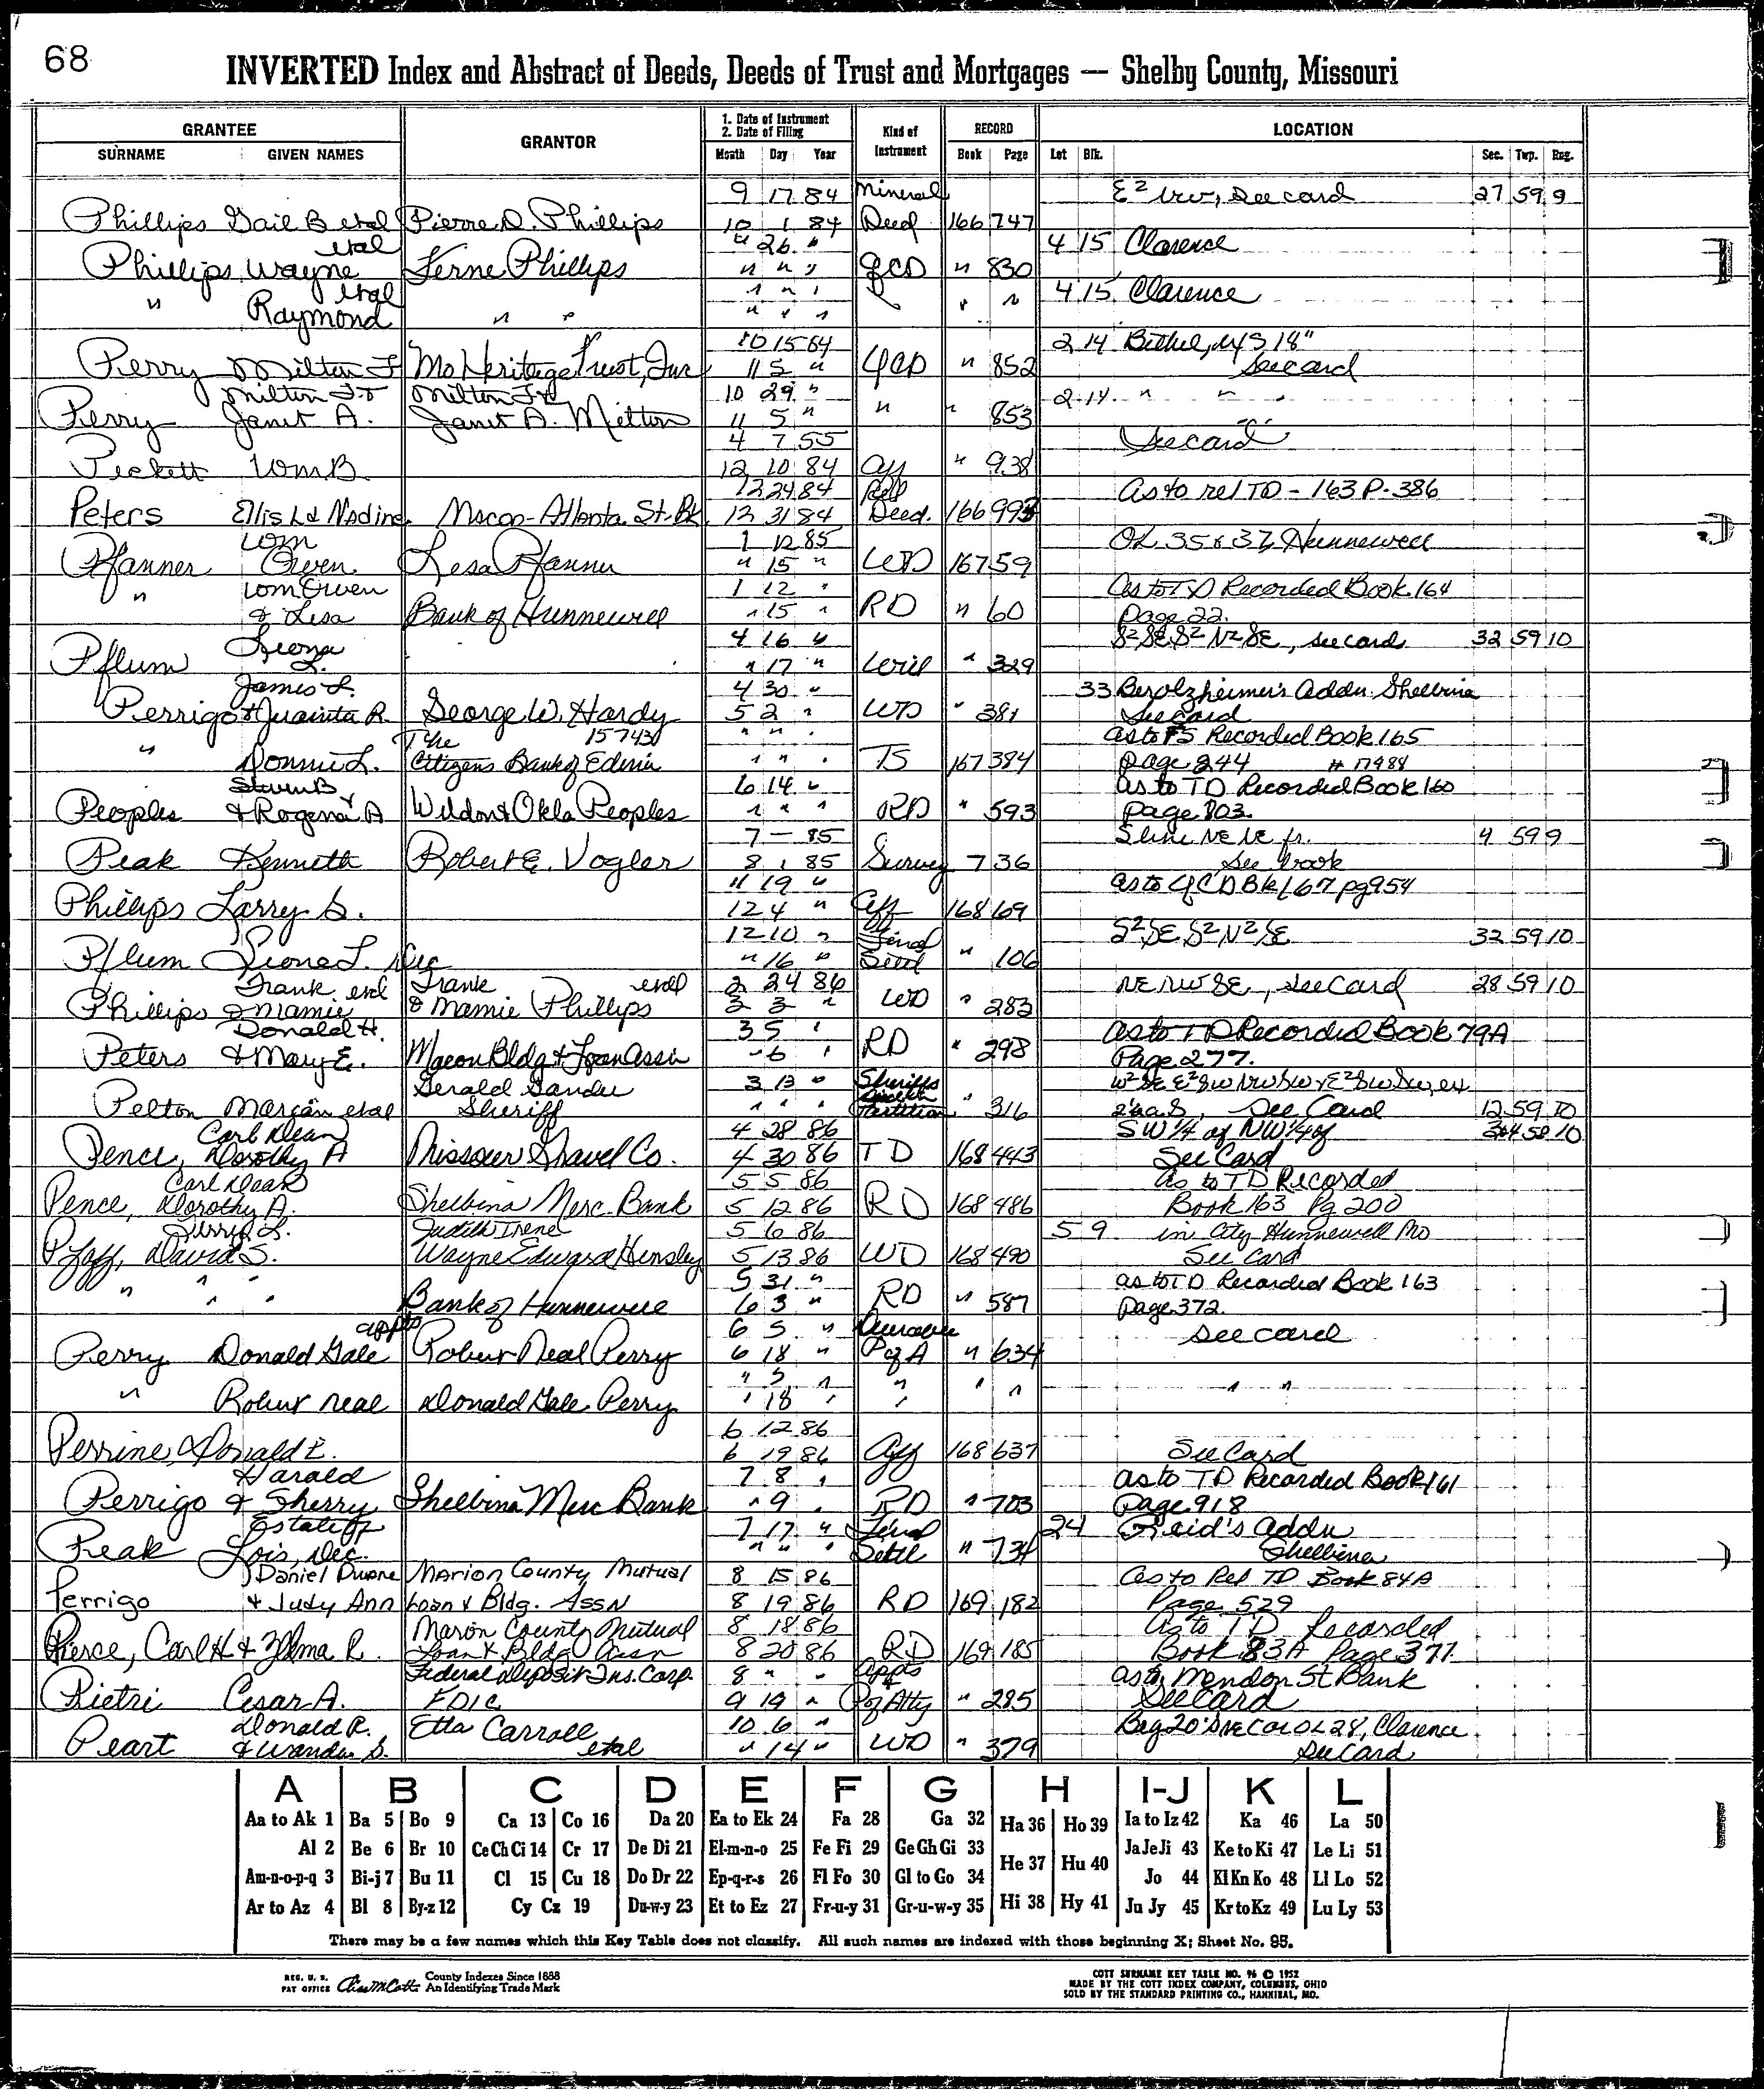 68
INVERTED Index and Abstract of Deeds, Deeds of Trust and Mortgages — Shelby County, Missouri
GRANTEE GRANTOR 1. Date of Instrument 2. Date of Filing Kind of Instrument RECORD LOCATION
SURNAME GIVEN NAMES Month Day Year Book Page Lot Blk. Sec. Twp. Rng.
9 17 84 Mineral E2 see card 27 59 9
Phillips Gail B etal Pierre D. Phillips 10 1 84 Deed 166 747
etal " 26 " 4 15 Clarence
Phillips Wayne Ferne Phillips " " " QCD " 830
etal " " " 4 15 Clarence
" Raymond " " " " " " "
10 15 84 2 14 Bethel, N/S 18"
Perry Milton F Mo Heritage Trust, Inc 11 5 " QCD " 852 See card
Milton F & Milton F & 10 29 " 2 14 " "
Perry Janet A. Janet A. Milton 11 5 " " " 853
4 7 55 See card
Pickett Wm B. 12 10 84 Aff " 938
12 24 84 Rel As to rel TD - 163 P. 386
Peters Ellis L & Nadine Macon-Atlanta St. Bk 12 31 84 Deed. 166 993
Wm 1 12 85 OL 35 & 37, Hunnewell
Pfanner Owen Lesa Pfanner " 15 " WD 167 59
Wm Owen 1 12 " As to TD Recorded Book 164
" & Lisa Bank of Hunnewell " 15 " RD " 60 Page 22.
Leona 4 16 " S2 SE, S2 N2 SE, see card 32 59 10
Pflum L. " 17 " Will " 329
James L. 4 30 " 33 Berolzheimer's Addn. Shelbina
Perrigo & Juanita R. George W. Hardy 5 2 " WD " 381 See Card
The 15743 " " " As to FS Recorded Book 165
" Donnie L. Citizens Bank of Edina " " " TS 167 384 page 244 # 17488
Steven B 6 14 " As to TD Recorded Book 160
Peoples & Rogena A Weldon & Okla Peoples " " " RD " 593 page 803.
7 — 85 S line NE NE fr. 9 59 9
Peak Kenneth Robert E. Vogler 8 1 85 Survey 7 36 See book
11 19 " As to QCD Bk 167 pg 954
Phillips Larry G. 12 4 " Aff 168 169
12 10 " Final S2 SE S2 N2 SE 32 59 10
Pflum Leona L. Dec " 16 " Settl " 106
Frank etal Frank etal 2 24 86 NE NW SE, See Card 28 59 10
Phillips & Mamie & Mamie Phillips 3 3 " WD " 283
Donald H. 3 5 " As to TD Recorded Book 79A
Peters & Mary E. Macon Bldg & Loan Assn " 6 " RD " 298 Page 277.
Gerald Gander 3 13 " Sheriffs W2 SE E2 SW NW SW & E2 SW SW, ex
Pelton Morgan etal Sheriff " " " Partition " 316 See Card 12 59 10
Carl Dean 4 28 86 SW 1/4 of NW 1/4 of 58 10
Pence, Dorothy A Missouri Gravel Co. 4 30 86 TD 168 443 See Card
Carl Dean 5 5 86 As to TD Recorded
Pence, Dorothy A. Shelbina Merc. Bank 5 12 86 RD 168 486 Book 163 Pg 200
Judith Irene 5 6 86 5 9 in City Hunnewell Mo
Pfaff, David S. Wayne Edward Hensley 5 13 86 WD 168 490 See Card
5 31 " As to TD Recorded Book 163
" " " Bank of Hunnewell 6 3 " RD " 587 page 372.
appts 6 5 " Durable see card
Perry Donald Gale Robert Neal Perry 6 18 " P of A " 634
" 5 " " " " " "
" Robert Neal Donald Gale Perry " 18 "
6 12 86
Perrine Donald E. 6 19 86 Aff 168 637 See Card
Harold 7 8 " As to TD Recorded Book 161
Perrigo & Sherry Shelbina Merc Bank " 9 " RD " 703 page 918
Estate of 7 17 " Final 24 Reid's Addn
Peak Lois, Dec. " " " Settl " 734 Shelbina
Daniel Duane Marion County Mutual 8 15 86 As to Rel TD Book 84A
Perrigo & Judy Ann Loan & Bldg. Assn 8 19 86 RD 169 182 Page 529
Marion County Mutual 8 18 86 As to TD Recorded
Pierce, Carl H & Zelma R. Loan & Bldg Assn 8 20 86 RD 169 185 Book 83A Page 371.
Federal Deposit Ins. Corp. 8 " " Appts as to Mendon St Bank
Pietri Cesar A. FDIC 9 19 " P of Atty " 285 See Card
Donald R. Etta Carroll 10 6 " Beg 20' S NE Cor OL 28, Clarence
Peart & Wanda S. etal " 14 " WD " 379 See Card
A B C D E F G H I-J K L
Aa to Ak 1 Ba 5 Bo 9 Ca 13 Co 16 Da 20 Ea to Ek 24 Fa 28 Ga 32 Ha 36 Ho 39 Ia to Iz 42 Ka 46 La 50
Al 2 Be 6 Br 10 Ce Ch Ci 14 Cr 17 De Di 21 El-m-n-o 25 Fe Fi 29 Ge Gh Gi 33 He 37 Hu 40 Ja Je Ji 43 Ke to Ki 47 Le Li 51
Am-n-o-p-q 3 Bi-j 7 Bu 11 Cl 15 Cu 18 Do Dr 22 Ep-q-r-s 26 Fl Fo 30 Gl to Go 34 Jo 44 Kl Kn Ko 48 Ll Lo 52
Ar to Az 4 Bl 8 By-z 12 Cy Cz 19 Du-w-y 23 Et to Ez 27 Fr-u-y 31 Gr-u-w-y 35 Hi 38 Hy 41 Ju Jy 45 Kr to Kz 49 Lu Ly 53
There may be a few names which this Key Table does not classify. All such names are indexed with those beginning X; Sheet No. 95.
REG. U. S. PAT OFFICE County Indexes Since 1888 An Identifying Trade Mark
COTT SURNAME KEY TABLE NO. 96 © 1952
MADE BY THE COTT INDEX COMPANY, COLUMBUS, OHIO
SOLD BY THE STANDARD PRINTING CO., HANNIBAL, MO.